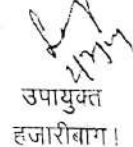 उपायुक्त
हजारीबाग।